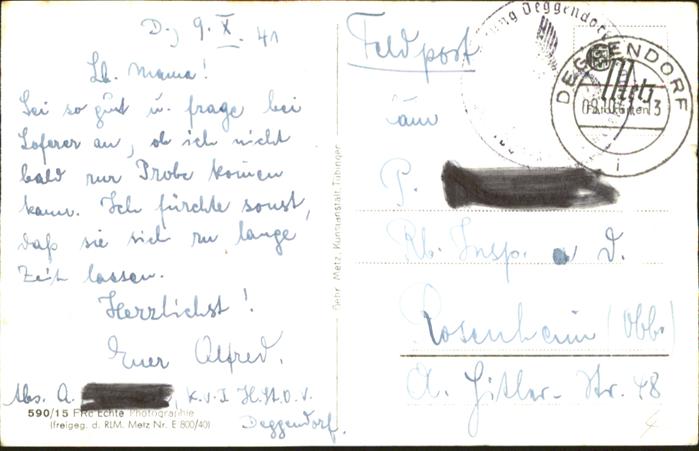 D., 9. X. 41
Lb. Mama!
Sei so gut u. frage bei
Loferer an, ob ich nicht
bald zur Probe kom̄en
kann. Ich fürchte sonst,
daß sie sich zu lange
Zeit lassen.
Herzlichst!
Euer Alfred.
Abs. A.
Deggendorf.
590/15 FRc Echte Photographie
(freigeg. d. RLM. Metz Nr. E 800/40)
Gebr. Metz, Kunstanstalt, Tübingen
Feldpost
Deggendorf
DEGGENDORF
Metz
Postkarten
P.
Rb. Insp. a. D.
Rosenheim (Obb.)
A. Hitler-Str. 48